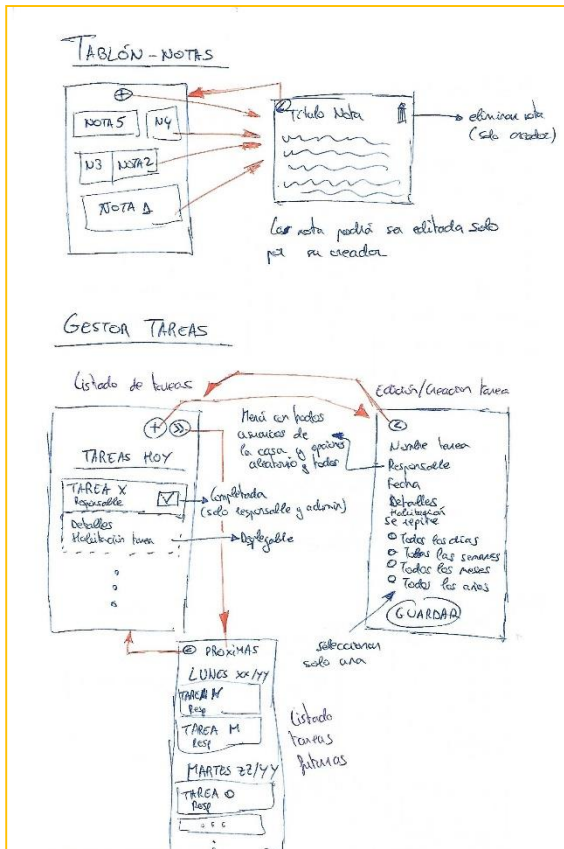 TABLÓN-NOTAS
NOTA 5
N4
N3
NOTA 2
NOTA 1
Título Nota
eliminar nota
(solo creador)
La nota podrá ser editada solo
por su creador
GESTOR TAREAS
Listado de tareas
TAREAS HOY
TAREA X
Responsable
Detalles
Habitación tarea
Completada
(solo responsable y admin)
Desplegable
Menú con todos
usuarios de
la casa y opciones
aleatorio y todos
Edición/Creación tarea
Nombre tarea
Responsable
Fecha
Detalles
Habitación
Se repite
Todos los días
Todas las semanas
Todos los meses
Todos los años
GUARDAR
seleccionar
solo una
PROXIMAS
LUNES XX/YY
TAREA N
Resp
TAREA M
Resp
MARTES ZZ/YY
TAREA O
Resp
Listado
tareas
futuras